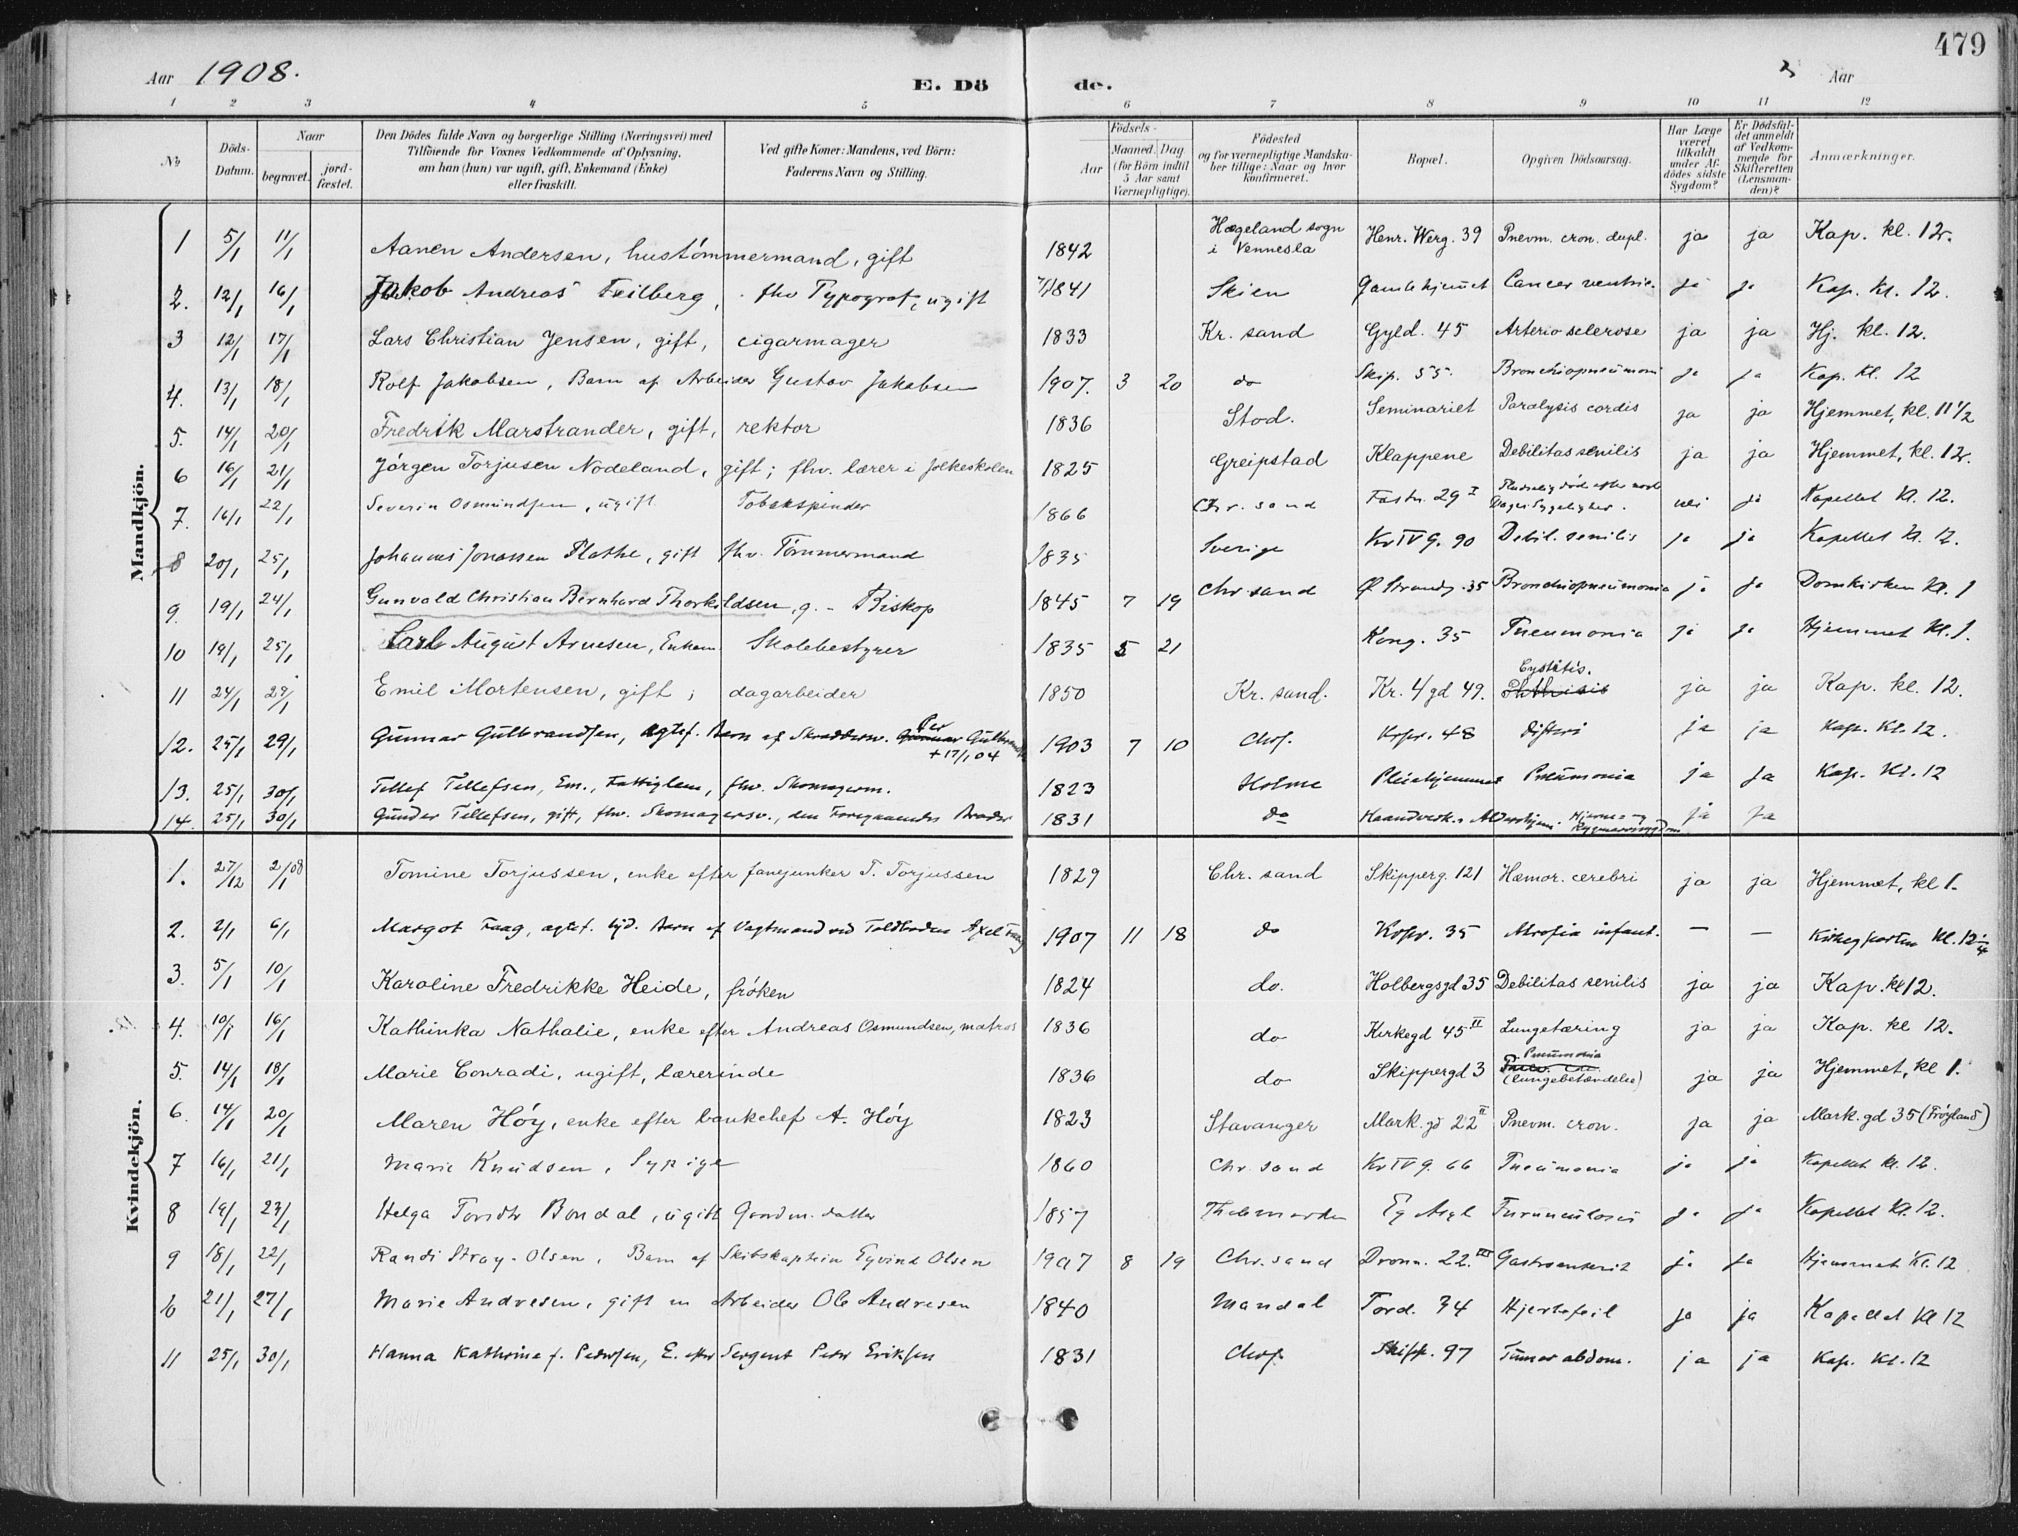 479
Aar 1908. E. Dö de. Aar
1 2 3 4 5 6 7 8 9 10 11 12
No
Döds-Datum.
Naar
begravet.
jord-fæstet.
Den Dödes fulde Navn og borgerlige Stilling (Næringsvei) med
Tilföiende for Voxnes Vedkommende af Oplysning,
om han (hun) var ugift, gift, Enkemand (Enke)
eller fraskilt.
Ved gifte Koner: Mandens, ved Börn:
Faderens Navn og Stilling.
Födsels-
Aar
Maaned. Dag.
(for Börn indtil
5 Aar samt
Værnepligtige).
Födested
og for værnepligtige Mandska-
ber tillige: Naar og hvor
konfirmeret.
Bopæl.
Opgiven Dödsaarsag.
Har Læge
været
tilkaldt
under Af-
dödes sidste
Sygdom?
Er Dödsfal-
det anmeldt
af Vedkom-
mende for
Skifteretten
(Lensman-
den)?
Anmærkninger.
Mandkjön.
1 5/1 11/1 Aanen Andersen, hustömmermand, gift 1842 Hægeland sogn i Vennesla Henr. Werg. 39 Pnevm. cron. dupl. ja ja Kap. kl. 12.
2. 12/1 16/1 Jakob Andreas Feilberg, fhv Typograf, ugift 1841 Skien Gamlehjemmet Cancer ventric. ja ja Kap. kl. 12.
3 12/1 17/1 Lars Christian Jensen, gift, cigarmager 1833 Kr. sand Gyld. 45 Arteriosclerose ja ja Hj. kl. 12.
4. 13/1 18/1 Rolf Jakobsen, Barn af Arbeider Gustav Jakobsen 1907. 3 20 do Skip. 55. Bronchiopneumoni ja ja Kap. kl. 12
5. 14/1 20/1 Fredrik Marstrander, gift, rektor 1836 Stod. Seminariet Paralysis cordis ja ja Hjemmet, kl. 11 1/2
6 16/1 21/1 Jörgen Torjusen Nodeland, gift; fhv. lærer i folkeskolen 1825 Greipstad Klappene Debilitas senilis ja ja Hjemmet, kl. 12.
7. 16/1 22/1 Severin Osmundsen, ugift Tobakspinder 1866 Chr. sand Fæstn. 29 I Pludselig död efter Dages Sygelighed. nei ja Kapellet kl. 12.
8 20/1 25/1 Johannes Jonassen Plathe, gift fhv. Tömmermand 1835 Sverige Kr IV g. 90 Debil. senilis ja ja Kapellet kl. 12.
9. 19/1 24/1 Gunvald Christian Bernhard Thorkildsen, g. - Biskop 1845 7 19 Chr sand Ø. Strandg. 35 Bronchiopneumonia ja ja Domkirken kl. 1
10 19/1 25/1 Carl August Arnesen, Enkem. Skolebestyrer 1835 5 21 Kong. 35 Pneumonia ja ja Hjemmet kl. 1.
11 24/1 29/1 Emil Mortensen, gift, dagarbeider 1850 Kr. sand. Kr. 4 gd 49. Cystitis. Phthisis ja ja Kap. kl. 12.
12. 25/1 29/1 Gunnar Gulbrandsen, ægtef. Barn af Skrædderm. Per Gulbrandsen + 17/1 04 1903 7 10 Chrs. Krpr. 48 Difteri ja ja Kap. kl. 12.
13. 25/1 30/1 Tellef Tellefsen, Em., Fattiglem, fhv. Skomagerm. 1823 Holme Pleiehjemmet Pneumonia ja ja Kap. kl. 12
14. 25/1 30/1 Gunder Tellefsen, gift, fhv. Skomagersv., den Foregaaendes Broder 1831 do Haandverk.s Aldershjem. Hjerne- og Rygmarvssygdom ja ja
Kvindekjön.
1. 27/12 2/1 08 Tomine Torjussen, enke efter fanejunker T. Torjussen 1829 Chr. sand Skipperg. 121 Hæmor. cerebri ja ja Hjemmet, kl 1.
2. 2/1 6/1 Margot Faag, ægtef. Barn af Vagtmand ved Toldboden Axel Faag 1907 11 18 do Krpr. 35 Atrofia infant. — — Kirkegporten kl. 12 1/4
3. 5/1 10/1 Karoline Fredrikke Heide, fröken 1824 do. Holbergsgd 35 Debilitas senilis ja ja Kap. kl 12.
4. 10/1 16/1 Kathinka Nathalie, enke efter Andreas Osmundsen, matros 1836 do Kirkegd 45 II Lungetæring ja ja Kap. kl 12.
5. 14/1 18/1 Marie Conradi, ugift, lærerinde 1836 do Skippergd 3 Pneumonia (lungebetændelse) ja ja Hjemmet, kl 1.
6. 14/1 20/1 Maren Höy, enke efter bankchef A. Höy 1823 Stavanger Mark. gd 22 II Pnevm. cron. ja ja Mark. gd 35 (Fröyland)
7 16/1 21/1 Marie Knudsen, Sypige 1860 Chr. sand Kr IV g. 66 Pneumonia ja ja Kapellet kl. 12.
8 19/1 23/1 Helga Tordtr Bondal, ugift Gaardm. datter 1857 Thelemarken Eg Asyl Furunculosis ja ja Kapellet kl. 12.
9 18/1 22/1 Randi Stray-Olsen, Barn af Skibskaptein Eyvind Olsen 1907 8 19 Chr. sand Dronn. 22. III Gastroenterit ja ja Hjemmet kl. 12
10 21/1 27/1 Marie Andresen, gift m Arbeider Ole Andresen 1840 Mandal Tord. 34 Hjertefeil ja ja Kapellet kl 12
11 25/1 30/1 Hanna Kathrine f. Pedersen, E. efter Sergent Peder Eriksen 1831 Chrs. Skipp. 97 Tumor abdom. ja ja Kap. kl. 12